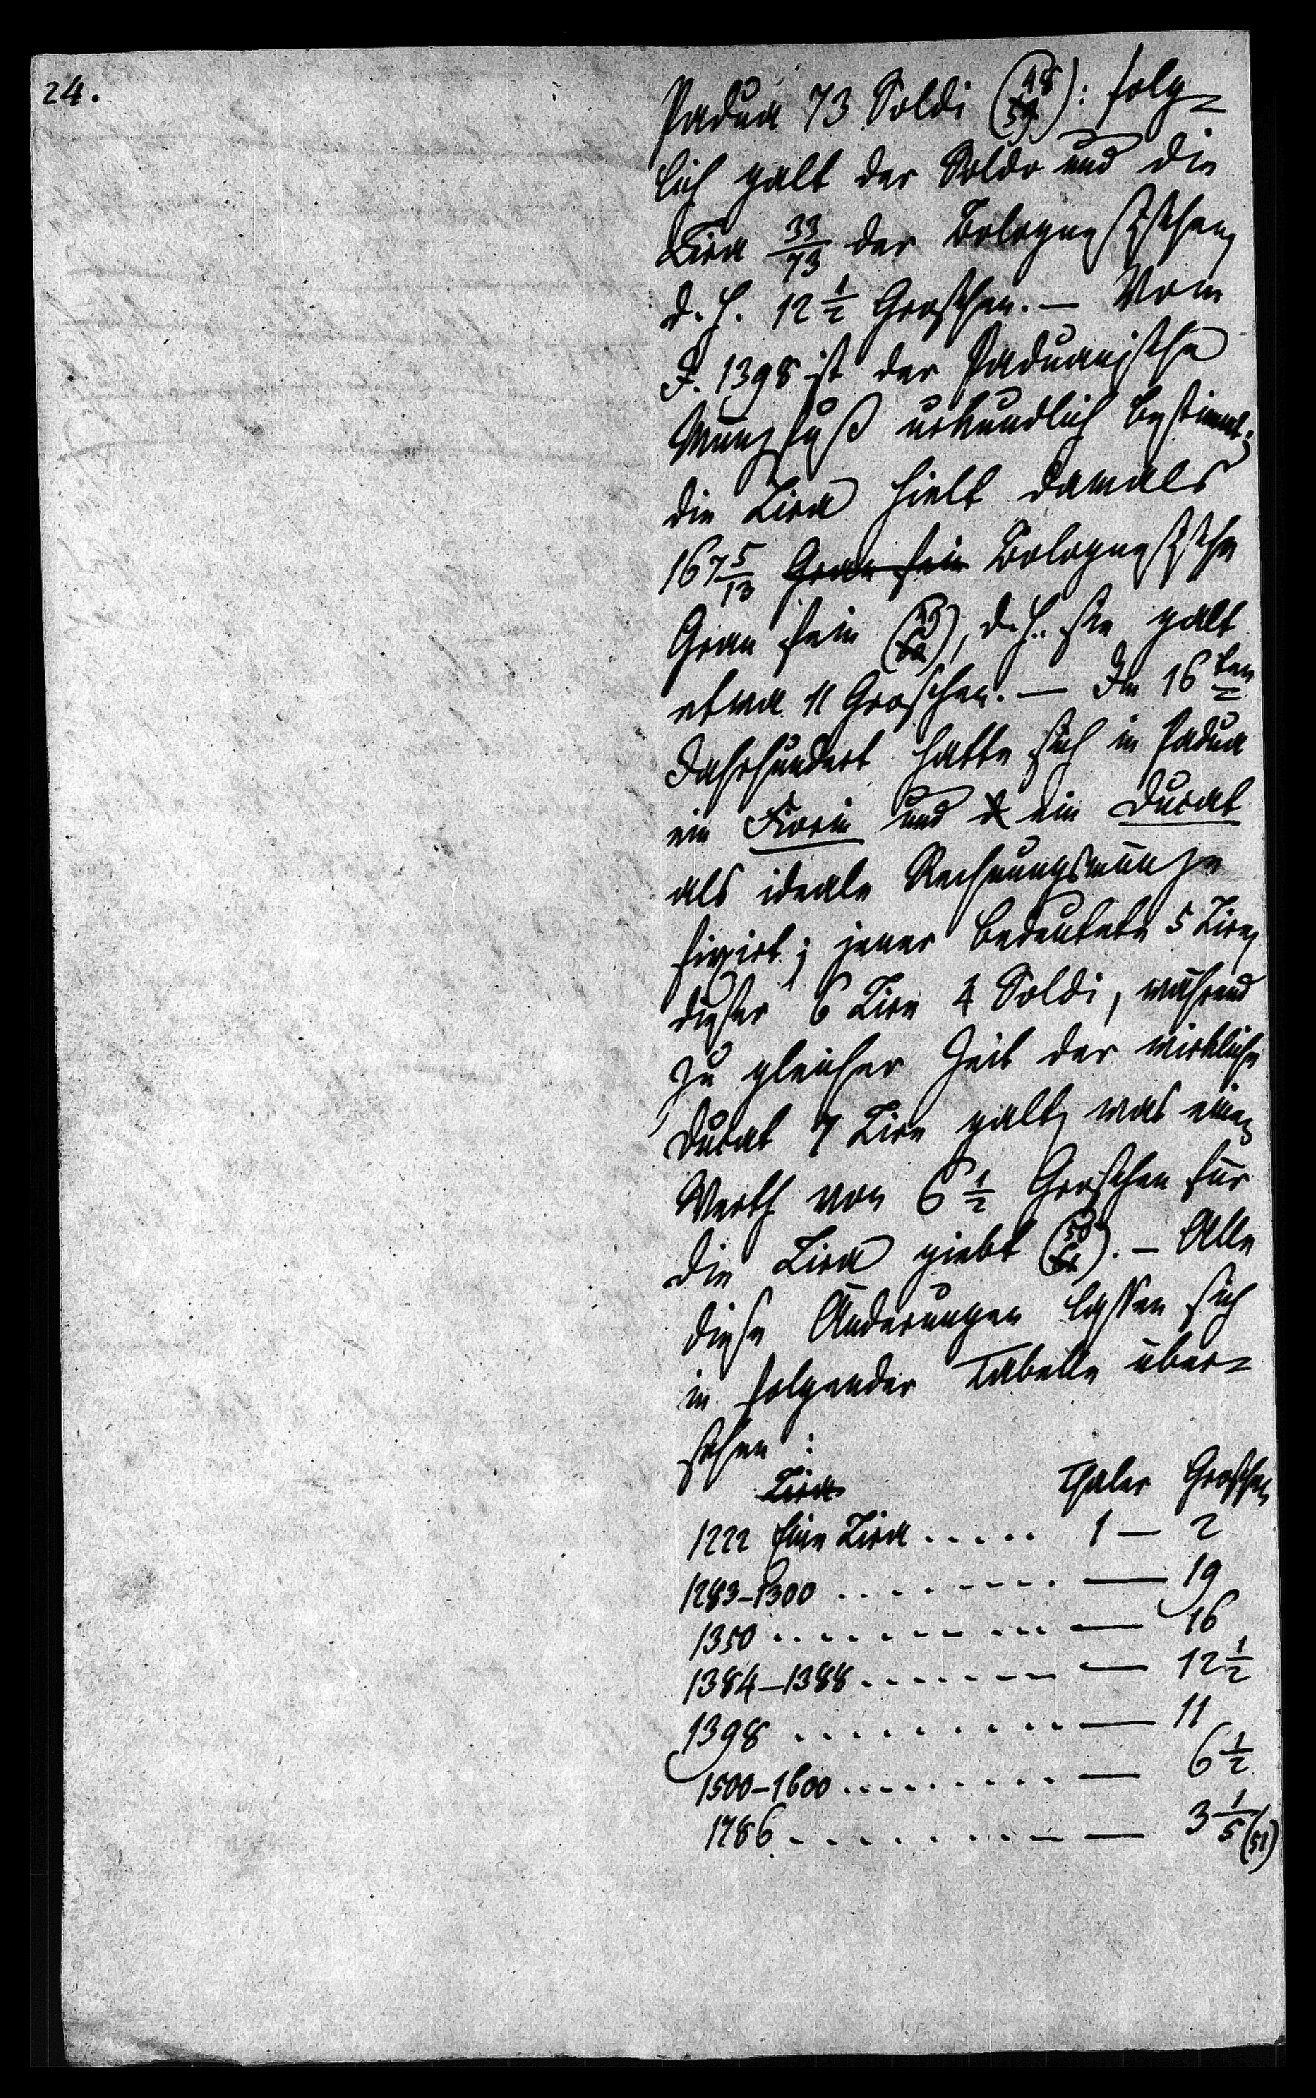 24.
Padua 73 Soldi (48): folg=
lich galt der Soldo und die
Lira 33/73 der Bolognesischen,
d. h. 12 1/2 Groschen. — Vom
J. 1398 ist der Paduanische
Münzfuß urkundlich bestimmt;
die Lira hielt damals
167 5/13 Gran fein Bolognesische
Gran fein (49), d. h. sie galt
etwa 11 Groschen. — Im 16ten
Jahrhundert hatte sich in Padua
ein Fiorin und d ein Ducat
als ideale Rechnungsmünze
fixirt; jener bedeutete 5 Lire,
dieser 6 Lire 4 Soldi, während
zu gleicher Zeit der wirkliche
Ducat 7 Lire galt, was einen
Werth von 6 1/2 Groschen für
die Lira giebt (50). — Alle
diese Änderungen lassen sich
in folgender Tabelle über=
sehen:
Lira Thaler Groschen
1222 Eine Lira ..... 1 — 2
1283–1300 ........ — 19
1350 .......... — 16
1384–1388 ....... — 12 1/2
1398 .......... — 11
1500–1600 ......... — 6 1/2
1786 .......... — 3 1/5 (51)